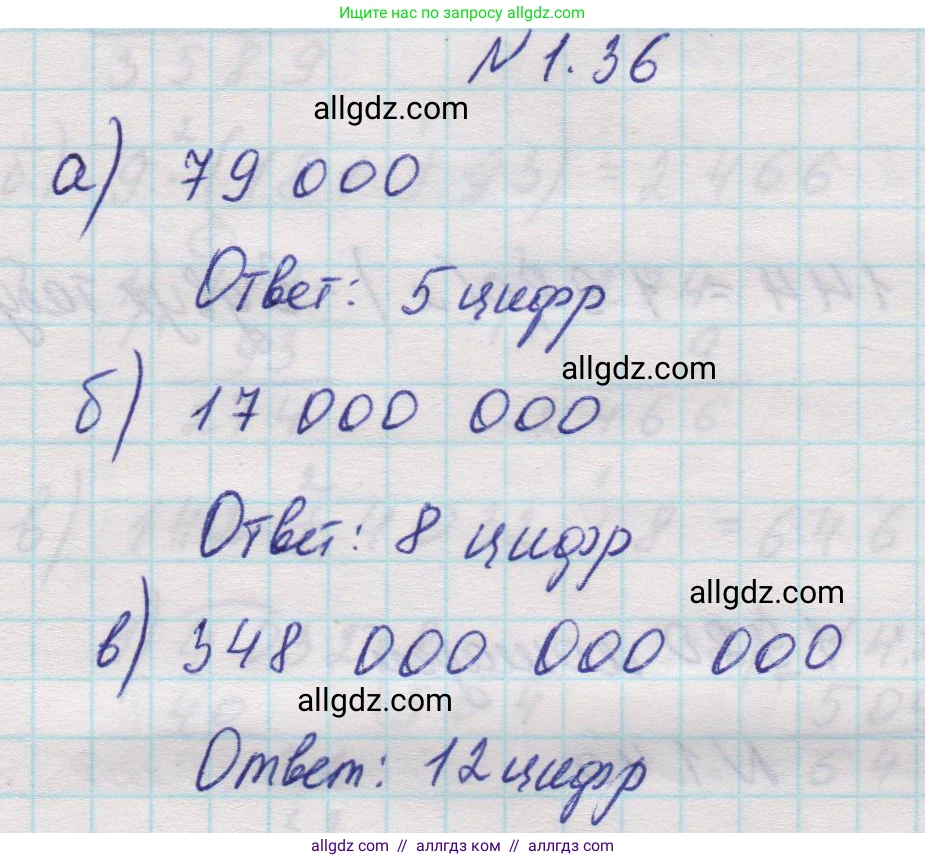 Ищите нас по запросу allgdz.com
N 1.36
allgdz.com
а) 79 000
Ответ: 5 цифр
allgdz.com
б) 17 000 000
Ответ: 8 цифр
allgdz.com
в) 348 000 000 000
allgdz.com
Ответ: 12 цифр
allgdz com // аллгдз ком // аллгдз.com